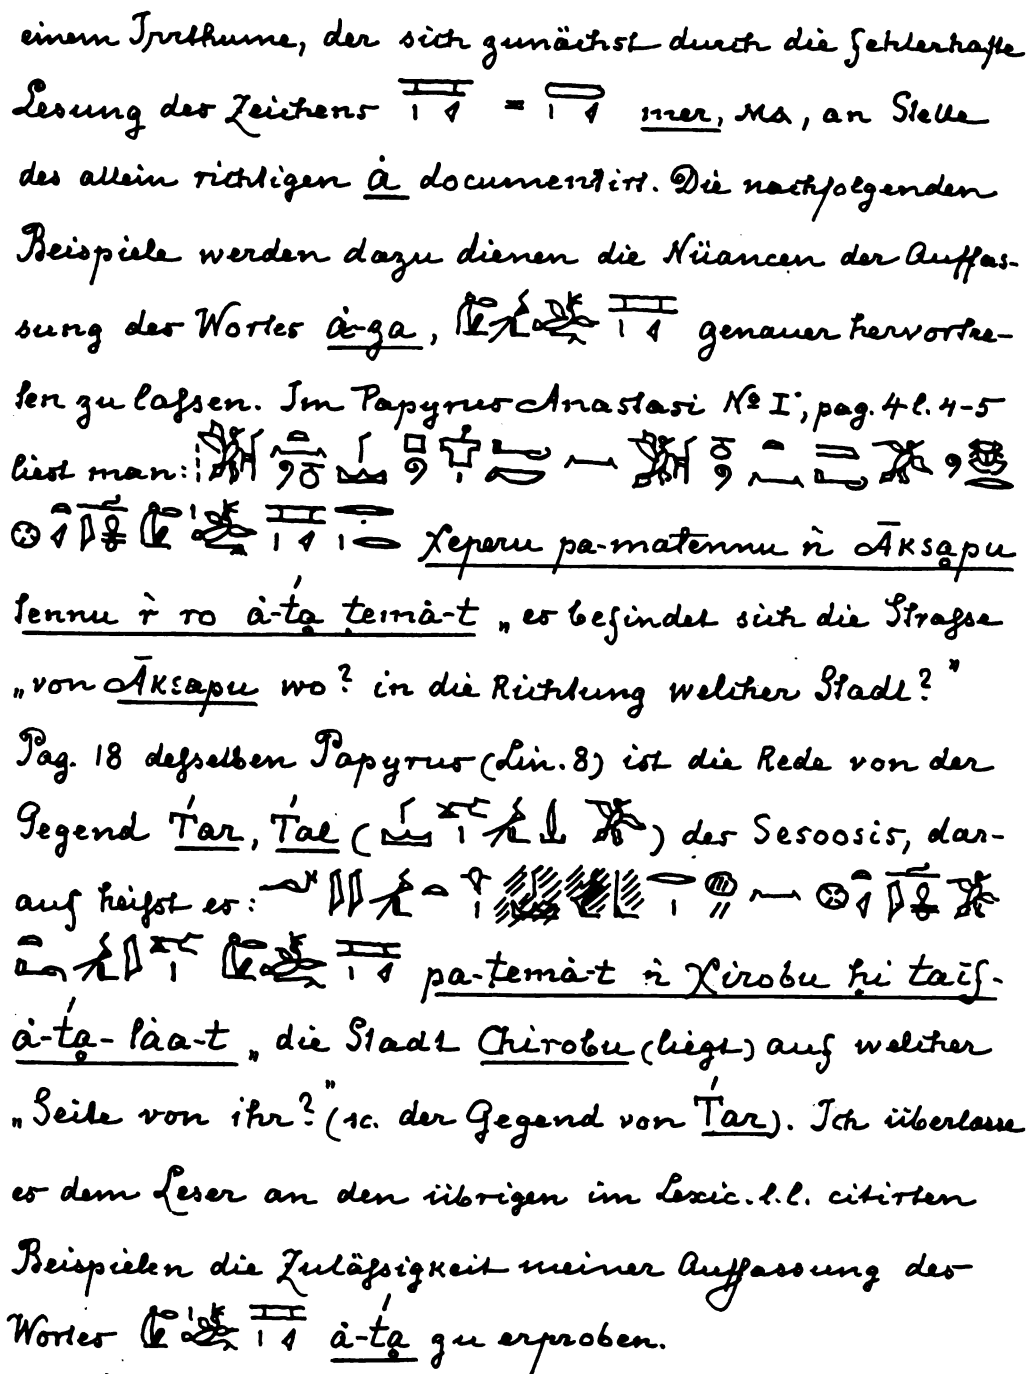 einem Irrthume, der sich zunächst durch die fehlerhafte
Lesung des Zeichens = mer, ма, an Stelle
des allein richtigen ȧ documentirt. Die nachfolgenden
Beispiele werden dazu dienen die Nüancen der Auffas-
sung des Wortes ȧ-ga, genauer hervortre-
ten zu lassen. Im Papyrus Anastasi Nº I, pag. 4 l. 4-5
liest man:
χeperu pa-matennu ǹ Āksạpu
tennu r̀ ro ȧ-t́ạ ṭemȧ-t „es befindet sich die Strasse
„von Āksapu wo? in die Richtung welcher Stadt?"
Pag. 18 desselben Papyrus (Lin. 8) ist die Rede von der
Gegend T́ar, T́al ( ) des Sesoosis, dar-
auf heisst es:
pa-ṭemȧ-t ǹ χirobu ḥi taif-
ȧ-t́ạ-lȧa-t „die Stadt Chirobu (liegt) auf welcher
„Seite von ihr?" (sc. der Gegend von T́ar). Ich überlasse
es dem Leser an den übrigen im Lexic. l.l. citirten
Beispielen die Zulässigkeit meiner Auffassung des
Wortes ȧ-t́ạ zu erproben.